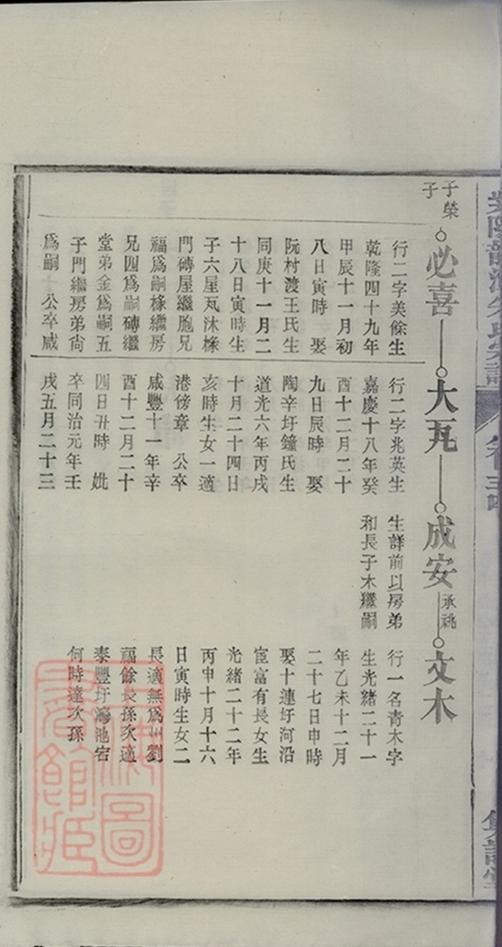 子榮
子
必喜
行二字美餘生
乾隆四十九年
甲辰十一月初
八日寅時 娶
阮村渡王氏生
同庚十一月二
十八日寅時生
子六屋瓦沐椽
門磚屋繼胞兄
福為嗣椽繼房
兄四為嗣磚繼
堂弟金為嗣五
子門繼房弟尙
為嗣 公卒咸
大瓦
行二字兆英生
嘉慶十八年癸
酉十二月二十
九日辰時 娶
陶辛圩鐘氏生
道光六年丙戌
十月二十四日
亥時生女一適
港傍章 公卒
咸豐十一年辛
酉十二月二十
四日丑時 妣
卒同治元年壬
戌五月二十三
成安
承祧
生詳前以房弟
和長子木繼嗣
文木
行一名青木字
生光緒二十一
年乙未十二月
二十七日申時
娶十連圩河沿
宦富有長女生
光緒二十二年
丙申十月十六
日寅時生女二
長適無為州劉
福餘長孫次適
泰豐圩灣池宕
何時達次孫